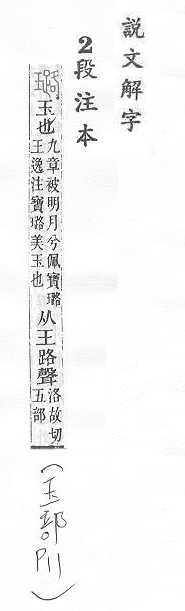 説文解字
2段注本
璐 玉也 九章被明月兮佩寶璐 王逸注寶璐美玉也 从王路聲 洛故切 五部
(玉部P11)